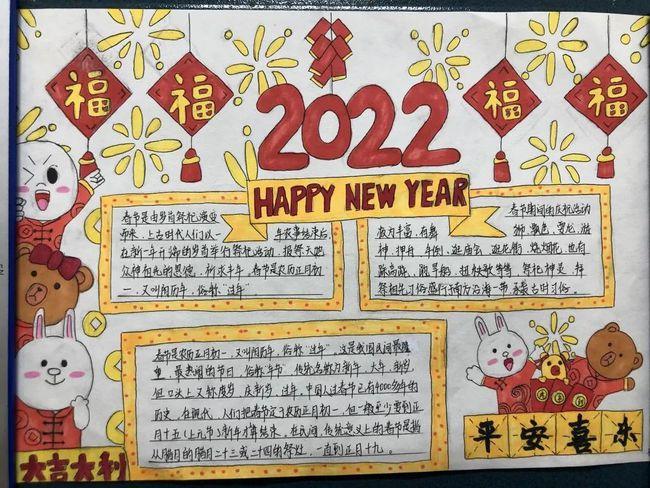 福
福
福
福
2022
HAPPY NEW YEAR
春节是由岁首祈祝演变
而来,上古时代人们以一 年农事结束后
在新一年
举行祭祝活动,报祭天地
众神
祈求丰年,春节是农历正月初
一,又叫阴历年,俗称"过年"
春节期间的庆祝活动
极为丰富,有舞
狮、飘色、耍龙、游
神、押舟、年例、逛庙会、逛花街、烧烟花,也有
踩高跷、跑旱船、扭秧歌等等,祭祝神灵、拜
祭祖先
春节是农历正月初一,又叫阴历年,俗称"过年"。这是我国民间最隆
重、最热闹的节日,俗称"年节",传统名称为新年、大年、新岁,
但口头上又称度岁、庆新岁、过年,中国人过春节已有4000多年的
历史,在现代,人们把春节定于农历正月初一,但一般至少要到正
月十五(上元节)新年才算结束,在民间,传统意义上的春节是指
从腊月的腊月二十三或二十四的祭灶,一直到正月十九。
大吉大利
平安喜乐